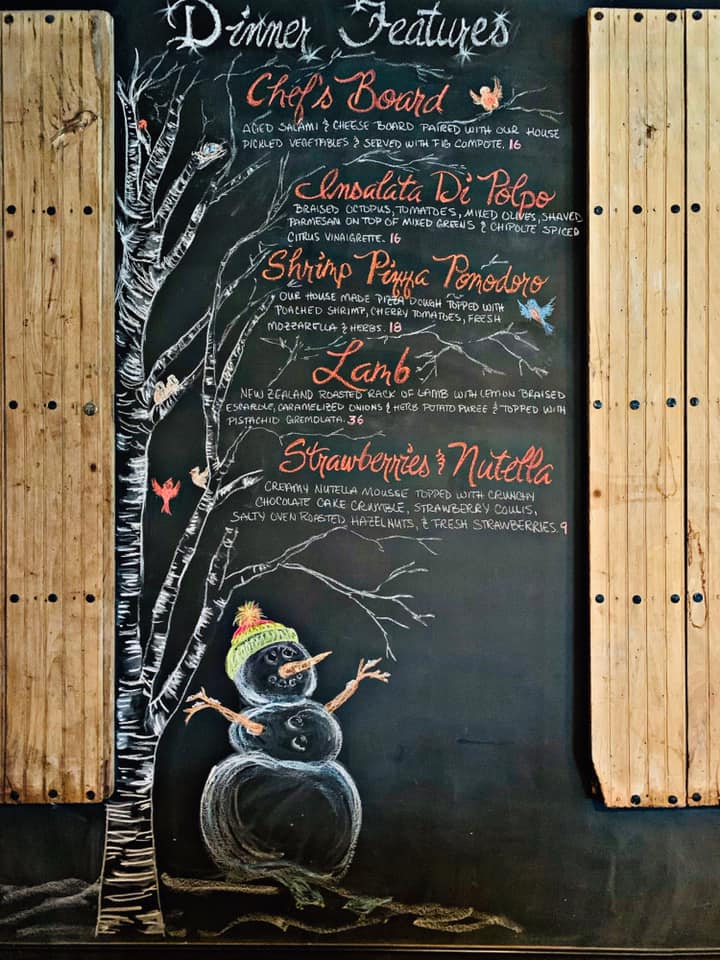 Dinner Features
Chef's Board
AGED SALAMI & CHEESE BOARD PAIRED WITH OUR HOUSE
PICKLED VEGETABLES & SERVED WITH FIG COMPOTE. 16
Insalata Di Polpo
BRAISED OCTOPUS, TOMATOES, MIXED OLIVES, SHAVED
PARMESAN ON TOP OF MIXED GREENS & CHIPOLTE SPICED
CITRUS VINAIGRETTE. 16
Shrimp Pizza Pomodoro
OUR HOUSE MADE PIZZA DOUGH TOPPED WITH
POACHED SHRIMP, CHERRY TOMATOES, FRESH
MOZZARELLA & HERBS. 18
Lamb
NEW ZEALAND ROASTED RACK OF LAMB WITH LEMON BRAISED
ESCAROLE, CARAMELIZED ONIONS & HERB POTATO PUREE & TOPPED WITH
PISTACHIO GREMOLATA. 36
Strawberries & Nutella
CREAMY NUTELLA MOUSSE TOPPED WITH CRUNCHY
CHOCOLATE CAKE CRUMBLE, STRAWBERRY COULIS,
SALTY OVEN ROASTED HAZELNUTS, & FRESH STRAWBERRIES. 9